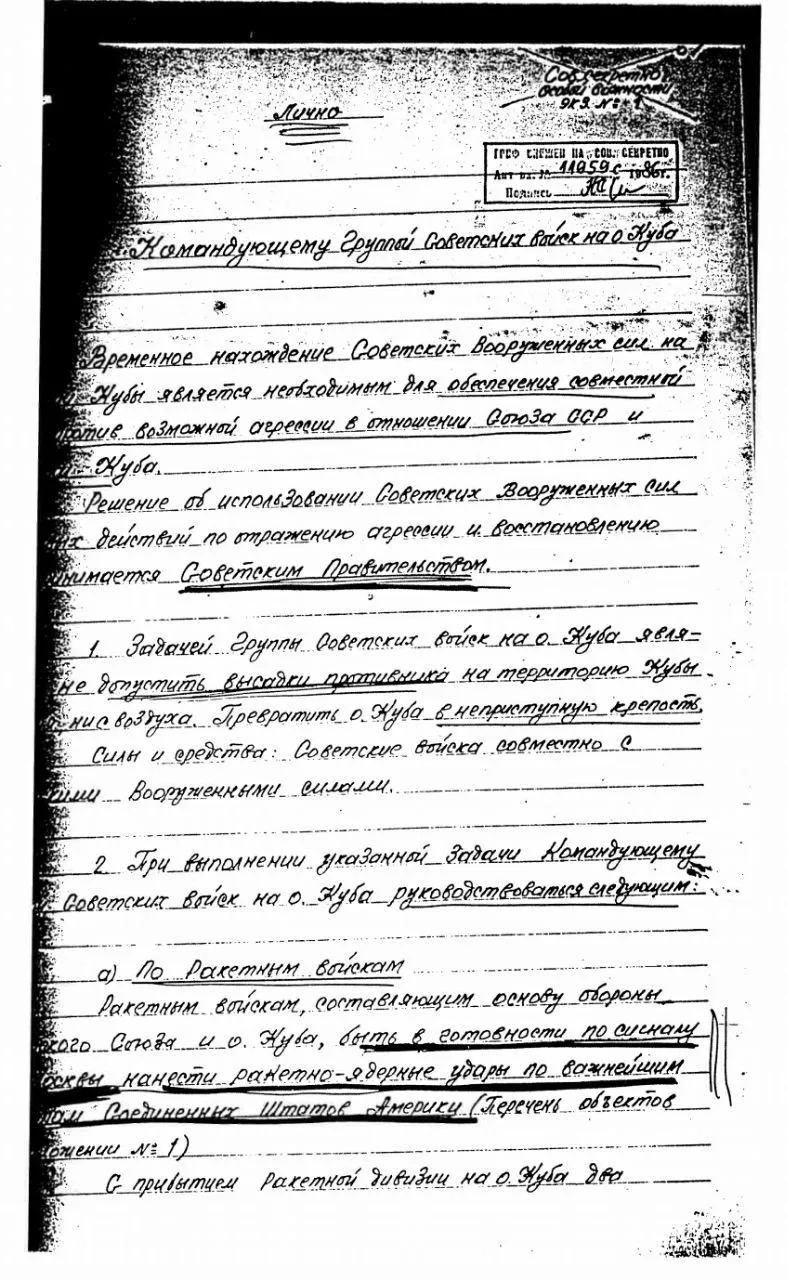 Сов. секретно
особой важности
экз. № 1
Лично
ГРИФ СНИЖЕН НА СОВ. СЕКРЕТНО
Акт вх. № 11959с 1986г.
Подпись
Командующему Группой Советских войск на о. Куба
Временное нахождение Советских Вооруженных сил на
Кубы является необходимым для обеспечения совместной
против возможной агрессии в отношении Союза ССР и
Куба.
Решение об использовании Советских Вооруженных сил
действий по отражению агрессии и восстановлению
нимается Советским Правительством.
1. Задачей Группы Советских войск на о. Куба явля-
не допустить высадки противника на территорию Кубы
ни с воздуха. Превратить о. Куба в неприступную крепость.
Силы и средства: Советские войска совместно с
Вооруженными силами.
2. При выполнении указанной задачи Командующему
Советских войск на о. Куба руководствоваться следующим:
а) По Ракетным войскам
Ракетным войскам, составляющим основу обороны
кого Союза и о. Куба, быть в готовности по сигналу
сквы нанести ракетно-ядерные удары по важнейшим
Соединенных Штатов Америки (Перечень объектов
ожении № 1)
С прибытием Ракетной дивизии на о. Куба два